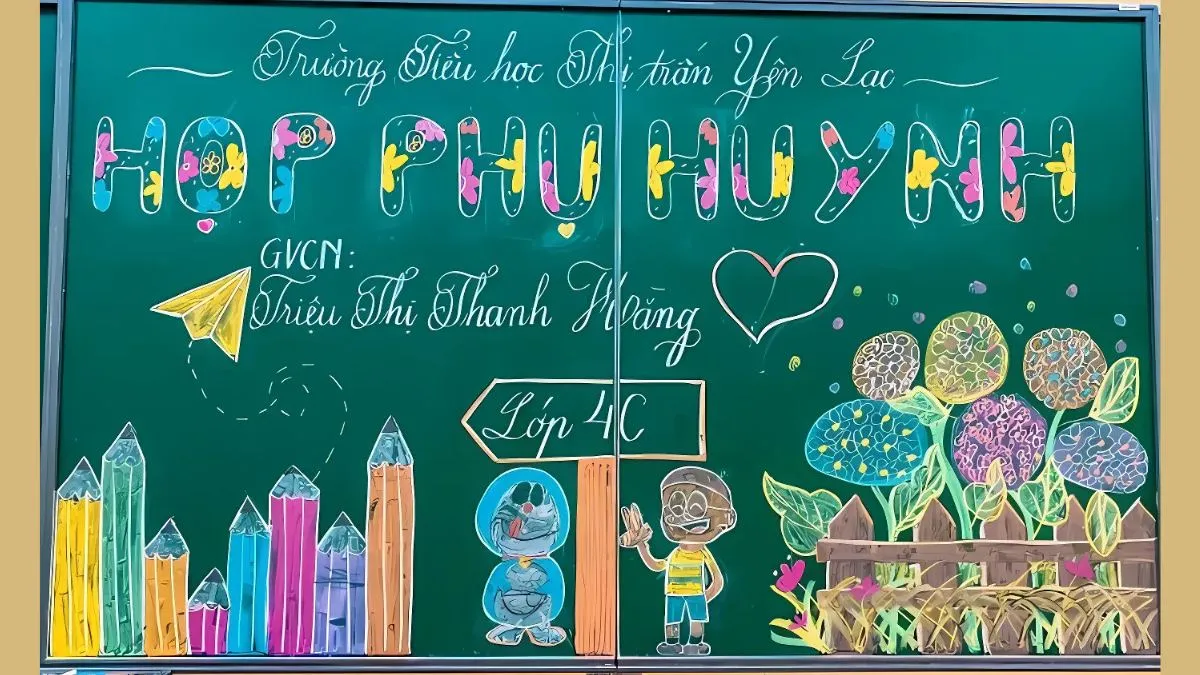 Trường Tiểu học Thị trấn Yên Lạc
HỌP PHU HUYNH
GVCN:
Triệu Thị Thanh Hoằng
Lớp 4C